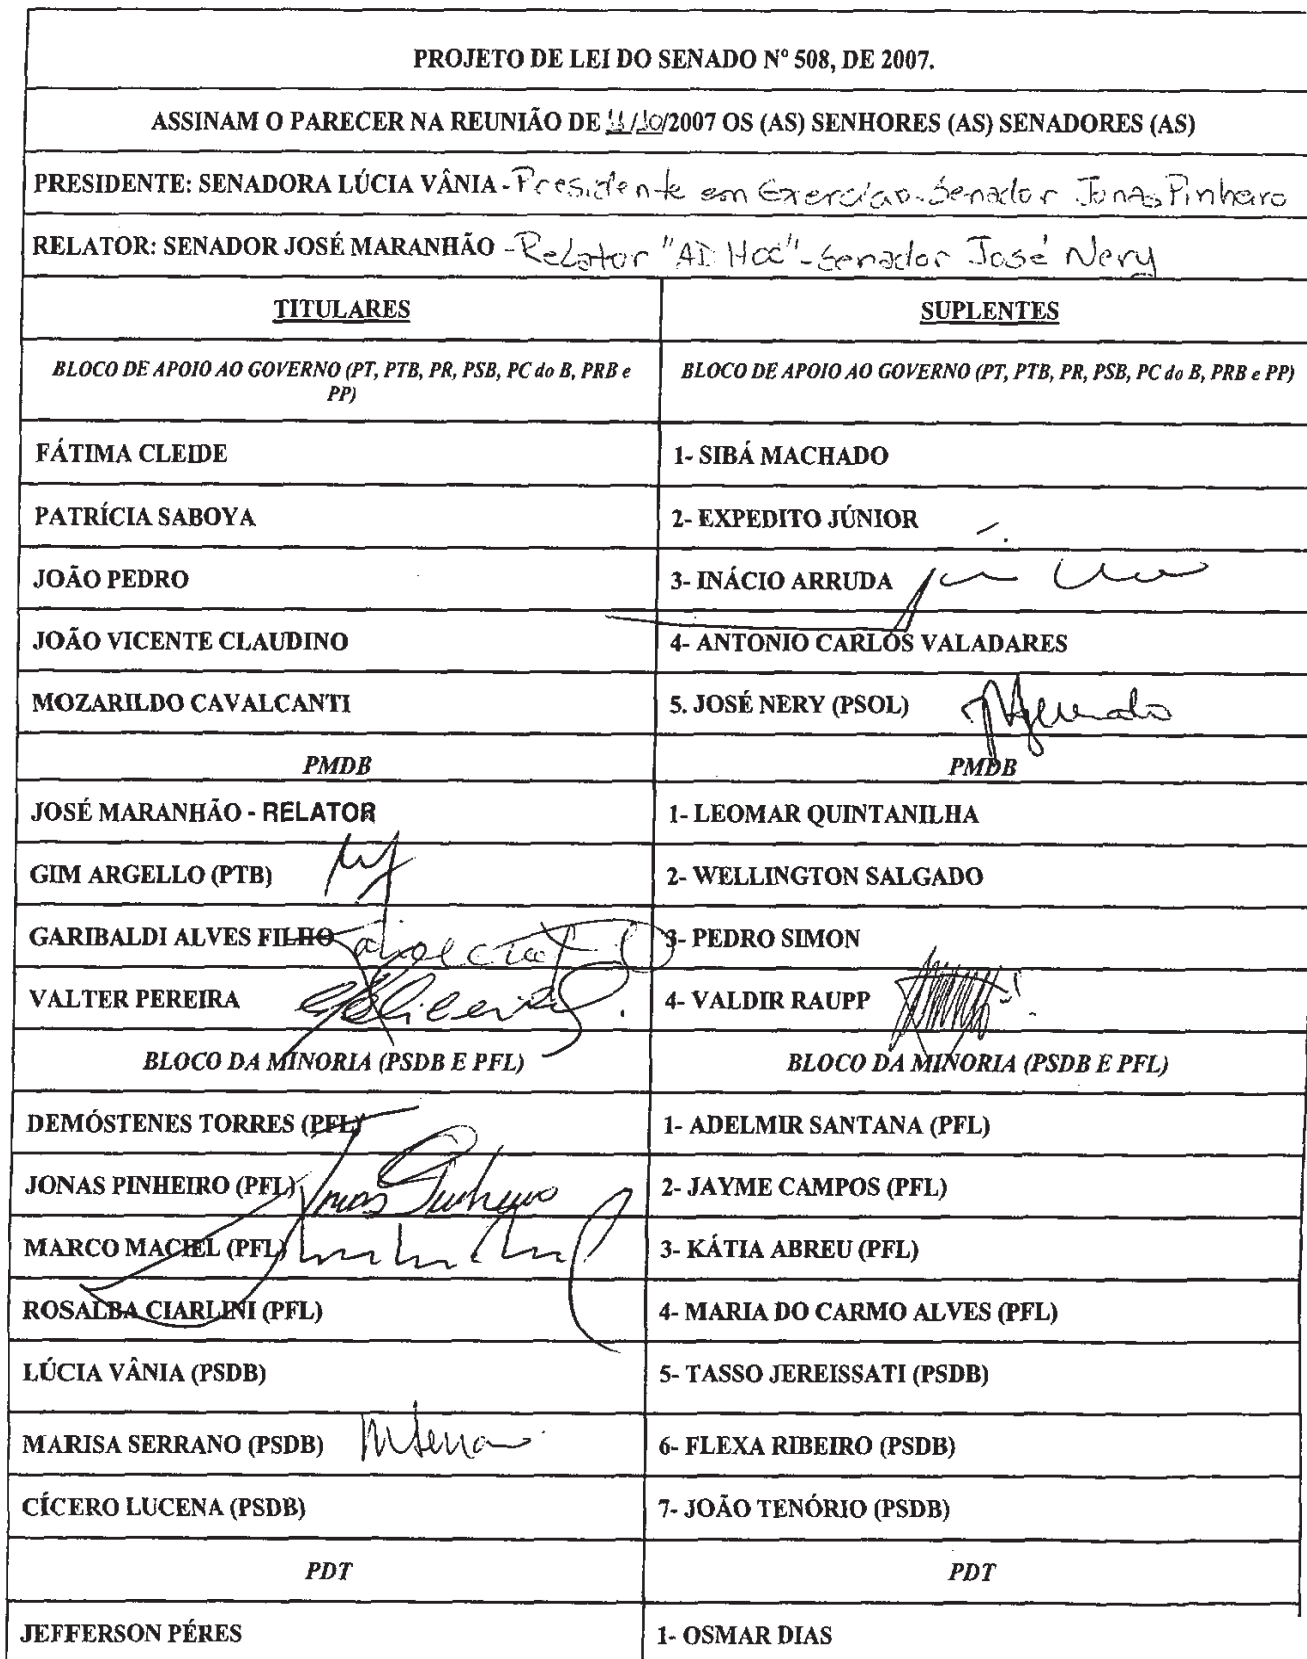 PROJETO DE LEI DO SENADO Nº 508, DE 2007.
ASSINAM O PARECER NA REUNIÃO DE /10/2007 OS (AS) SENHORES (AS) SENADORES (AS)
PRESIDENTE: SENADORA LÚCIA VÂNIA - Presidente em Exercício - Senador Jonas Pinheiro
RELATOR: SENADOR JOSÉ MARANHÃO - Relator "AD HOC" - Senador José Nery
TITULARES SUPLENTES
BLOCO DE APOIO AO GOVERNO (PT, PTB, PR, PSB, PC do B, PRB e PP) BLOCO DE APOIO AO GOVERNO (PT, PTB, PR, PSB, PC do B, PRB e PP)
FÁTIMA CLEIDE 1- SIBÁ MACHADO
PATRÍCIA SABOYA 2- EXPEDITO JÚNIOR
JOÃO PEDRO 3- INÁCIO ARRUDA
JOÃO VICENTE CLAUDINO 4- ANTONIO CARLOS VALADARES
MOZARILDO CAVALCANTI 5. JOSÉ NERY (PSOL)
PMDB PMDB
JOSÉ MARANHÃO - RELATOR 1- LEOMAR QUINTANILHA
GIM ARGELLO (PTB) 2- WELLINGTON SALGADO
GARIBALDI ALVES FILHO 3- PEDRO SIMON
VALTER PEREIRA 4- VALDIR RAUPP
BLOCO DA MINORIA (PSDB E PFL) BLOCO DA MINORIA (PSDB E PFL)
DEMÓSTENES TORRES (PFL) 1- ADELMIR SANTANA (PFL)
JONAS PINHEIRO (PFL) Jonas Pinheiro 2- JAYME CAMPOS (PFL)
MARCO MACIEL (PFL) 3- KÁTIA ABREU (PFL)
ROSALBA CIARLINI (PFL) 4- MARIA DO CARMO ALVES (PFL)
LÚCIA VÂNIA (PSDB) 5- TASSO JEREISSATI (PSDB)
MARISA SERRANO (PSDB) 6- FLEXA RIBEIRO (PSDB)
CÍCERO LUCENA (PSDB) 7- JOÃO TENÓRIO (PSDB)
PDT PDT
JEFFERSON PÉRES 1- OSMAR DIAS